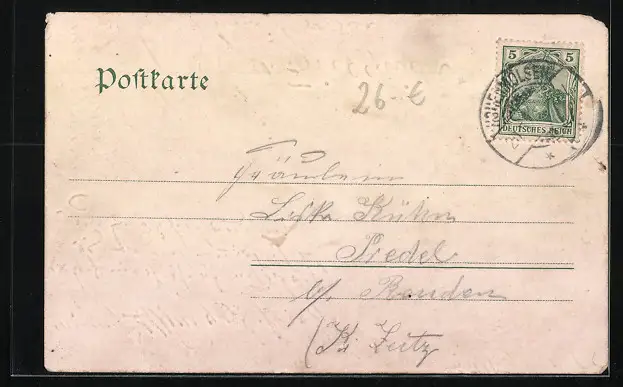 Postkarte
26-€
5 5
DEUTSCHES REICH
HOHENMÖLSEN
Fräulein
Kühn
Predel
b/. Reuden
(Kr. Zeitz